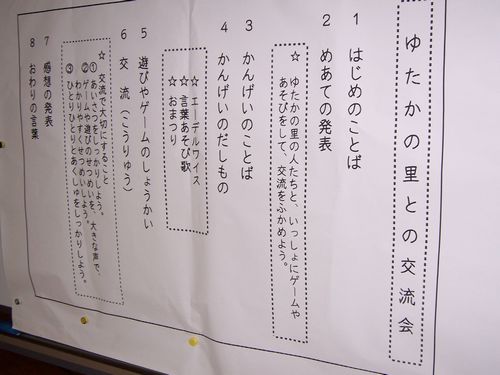 ゆたかの里との交流会
1 はじめのことば
2 めあての発表
☆ ゆたかの里の人たちと、いっしょにゲームや
あそびをして、交流をふかめよう。
3 かんげいのことば
4 かんげいのだしもの
☆ エーデルワイス
☆ 言葉あそび歌
☆ おまつり
5 遊びやゲームのしょうかい
6 交 流（こうりゅう）
☆ 交流で大切にすること
① あいさつをしっかりしよう。
② ゲームや遊びのせつめいを、大きな声で、
わかりやすくせつめいしよう。
③ ひとりひとりとあくしゅをしっかりしよう。
7 感想の発表
8 おわりの言葉